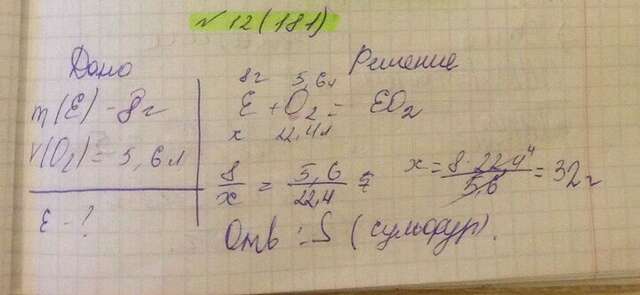 N 12 (181)
Дано
m(E) - 8г
V(O₂) = 5,6л
E - ?
Решение
8г 5,6л
E + O₂ = EO₂
x 22,4л
8/x = 5,6/22,4 = x = 8·22,4⁴/5,6 = 32г
Отв: S (сульфур).